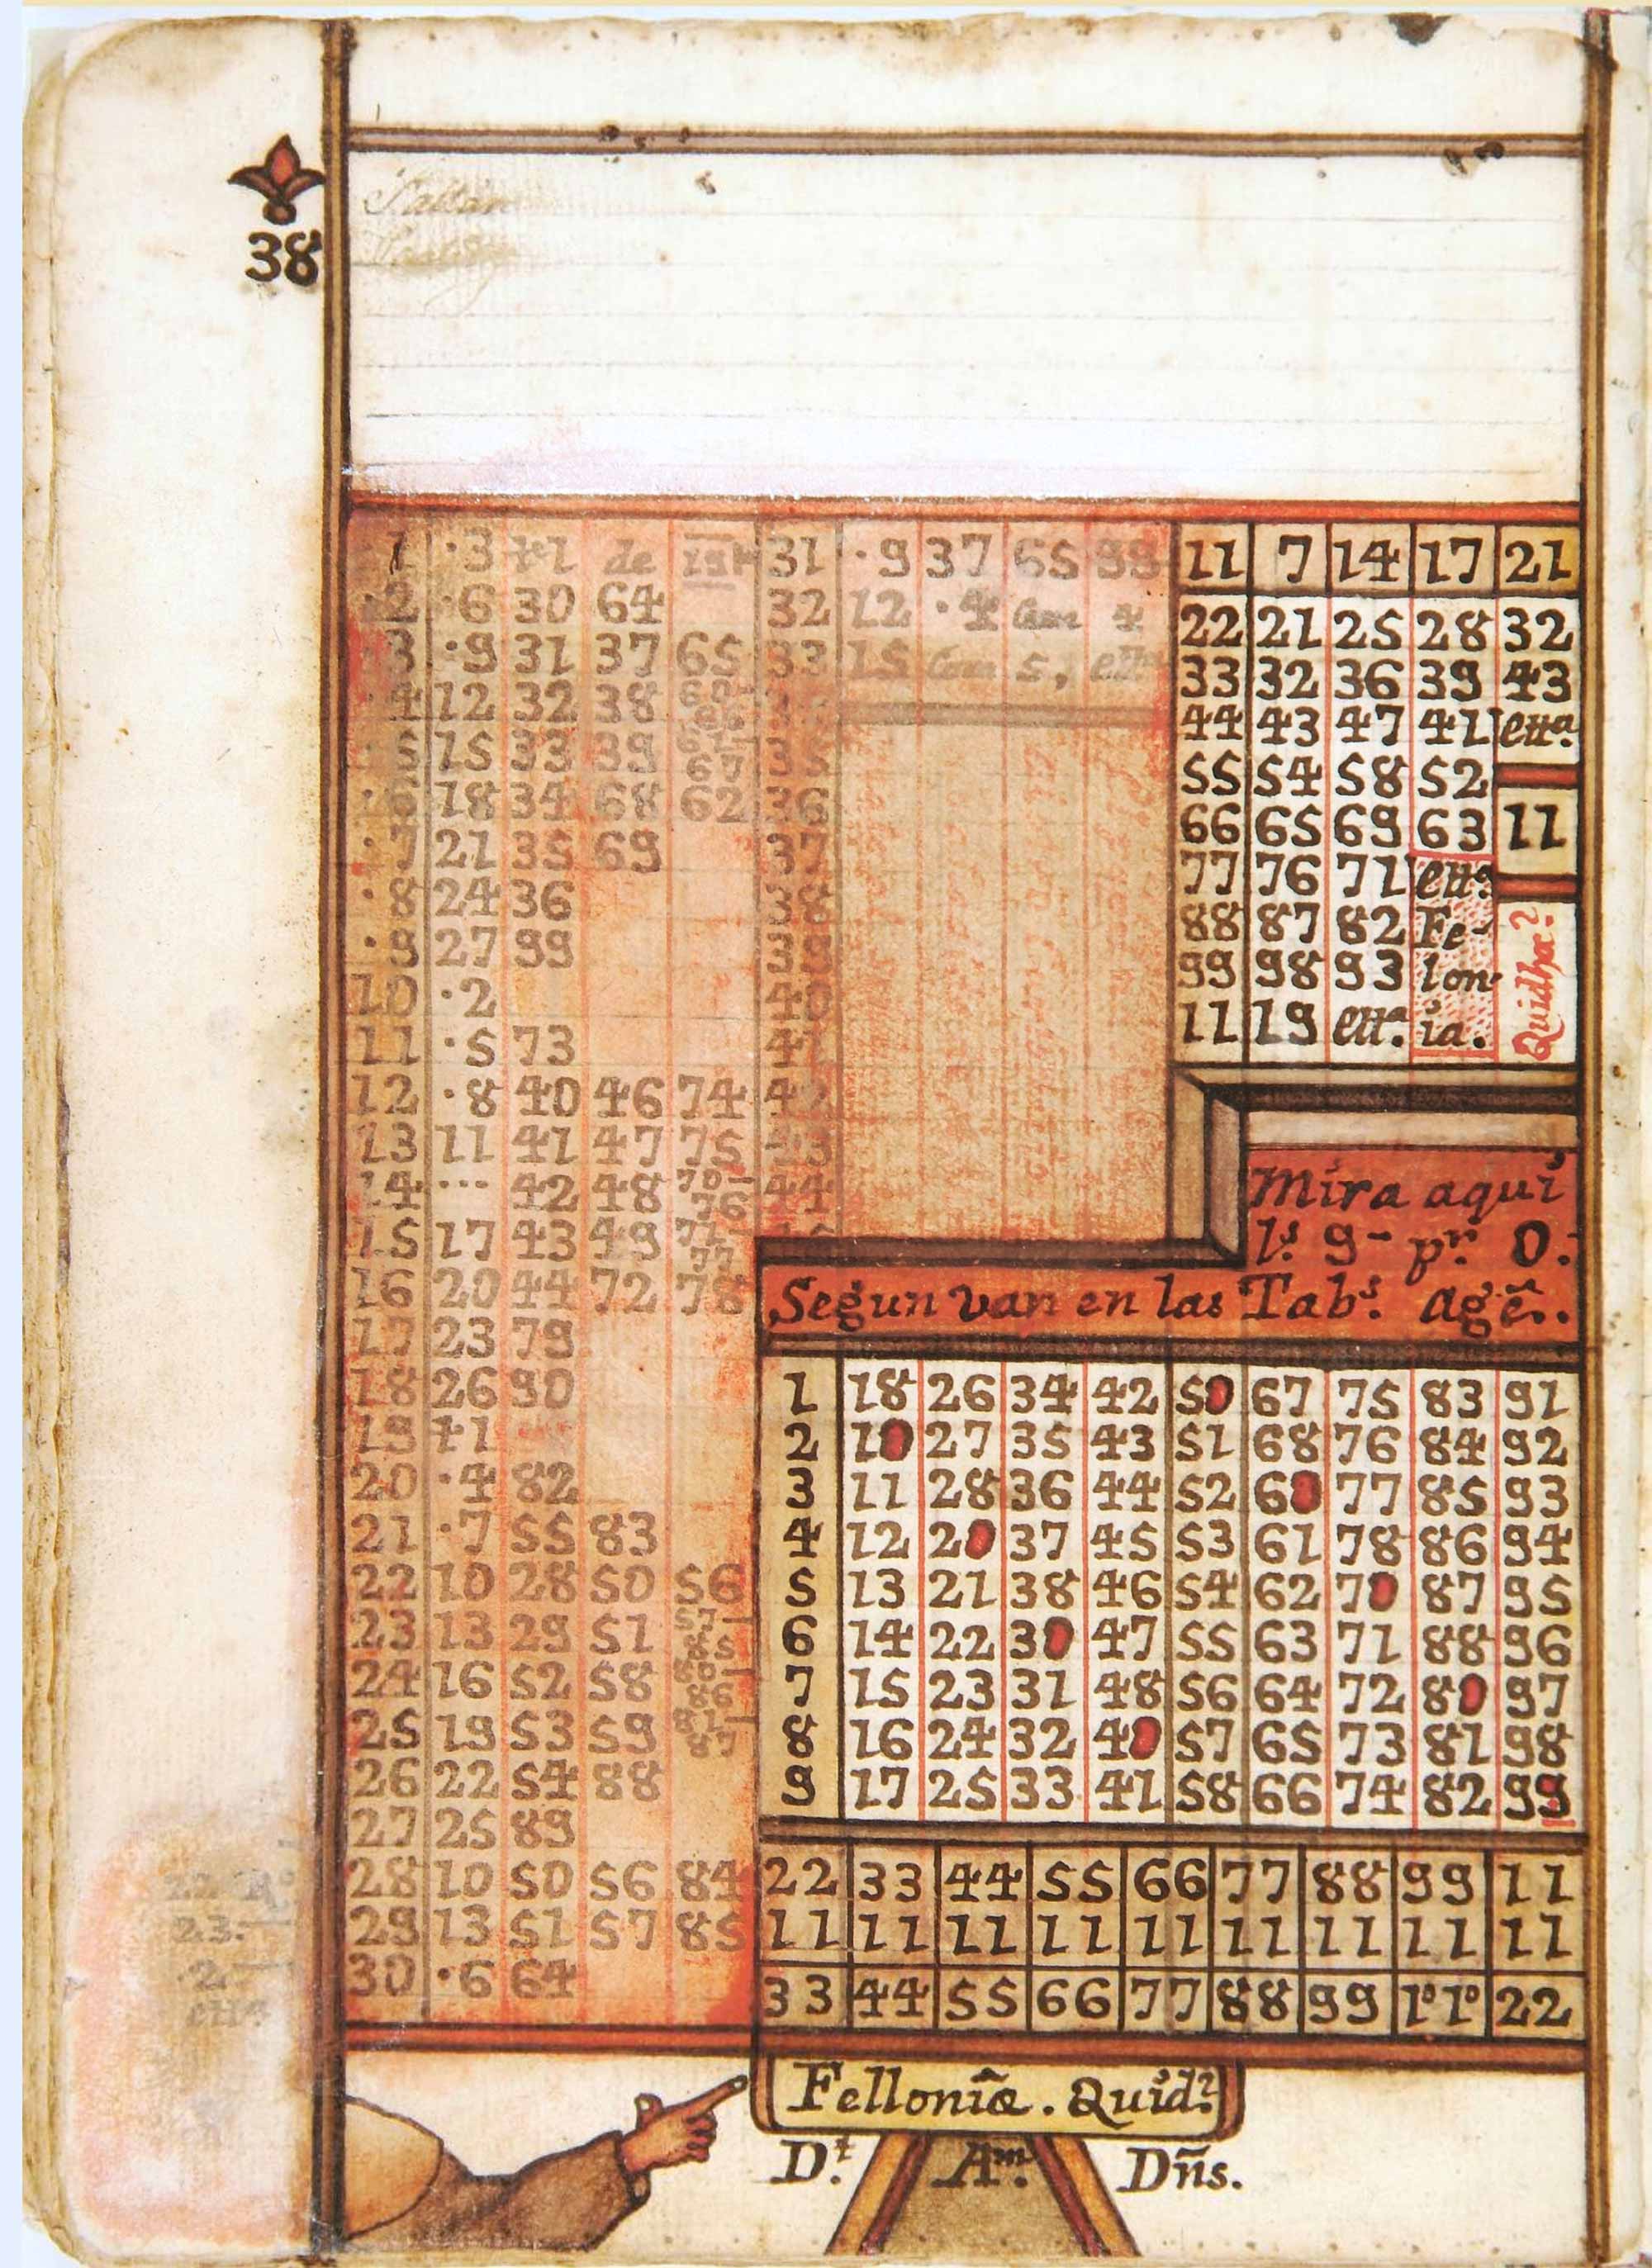 38
1 ·3 de
·6 30 64
·9 31 37 65
12 32 38
15 33 39 67
18 34 68 62
·7 21 35 69
·8 24 36
·9 27 99
10 ·2
11 ·5 73
12 ·8 40 46 74
13 11 41 47 75
14 ··· 42 48 70- 76
15 17 43 49 71- 77
16 20 44 72 78
17 23 79
18 26 90
19 +1
20 ·4 82
21 ·7 55 83
22 10 28 50 56
23 13 29 51 57- 85
24 16 52 58 80- 86
25 19 53 59 81- 87
26 22 54 88
27 25 89
28 10 50 56 84
29 13 51 57 85
30 ·6 64
31 ·9 37 65 99
32 12 ·4 4
33 15 5,
35
36
37
38
39
40
42
43
44
11 7 14 17 21
22 21 25 28 32
33 32 36 39 43
44 43 47 41 etta.
55 54 58 52
66 65 69 63 11
77 76 71 etta
88 87 82 Fe-
99 98 93 lon-
11 19 etta. ia.
Quidha?
Mira aqui
ls. 9- pr. 0.
Segun van en las Tabs. agẽ..
1 18 26 34 42 50 67 75 83 91
2 10 27 35 43 51 68 76 84 92
3 11 28 36 44 52 60 77 85 93
4 12 20 37 45 53 61 78 86 94
5 13 21 38 46 54 62 70 87 95
6 14 22 30 47 55 63 71 88 96
7 15 23 31 48 56 64 72 80 97
8 16 24 32 40 57 65 73 81 98
9 17 25 33 41 58 66 74 82 99
22 33 44 55 66 77 88 99 11
11 11 11 11 11 11 11 11 11
33 44 55 66 77 88 99 1º1º 22
23.
Felloniæ. Quid?
D.t Am. Dñs.